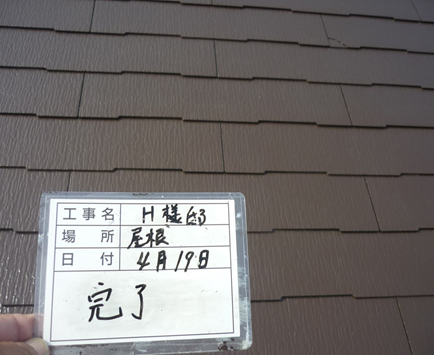 工事名 H様邸
場所 屋根
日付 4月19日
完了